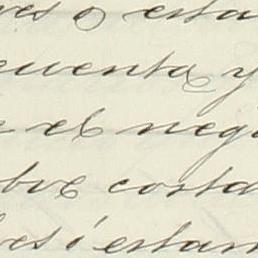 es o esta
cuenta y
e el neg
bre costa
es i estam